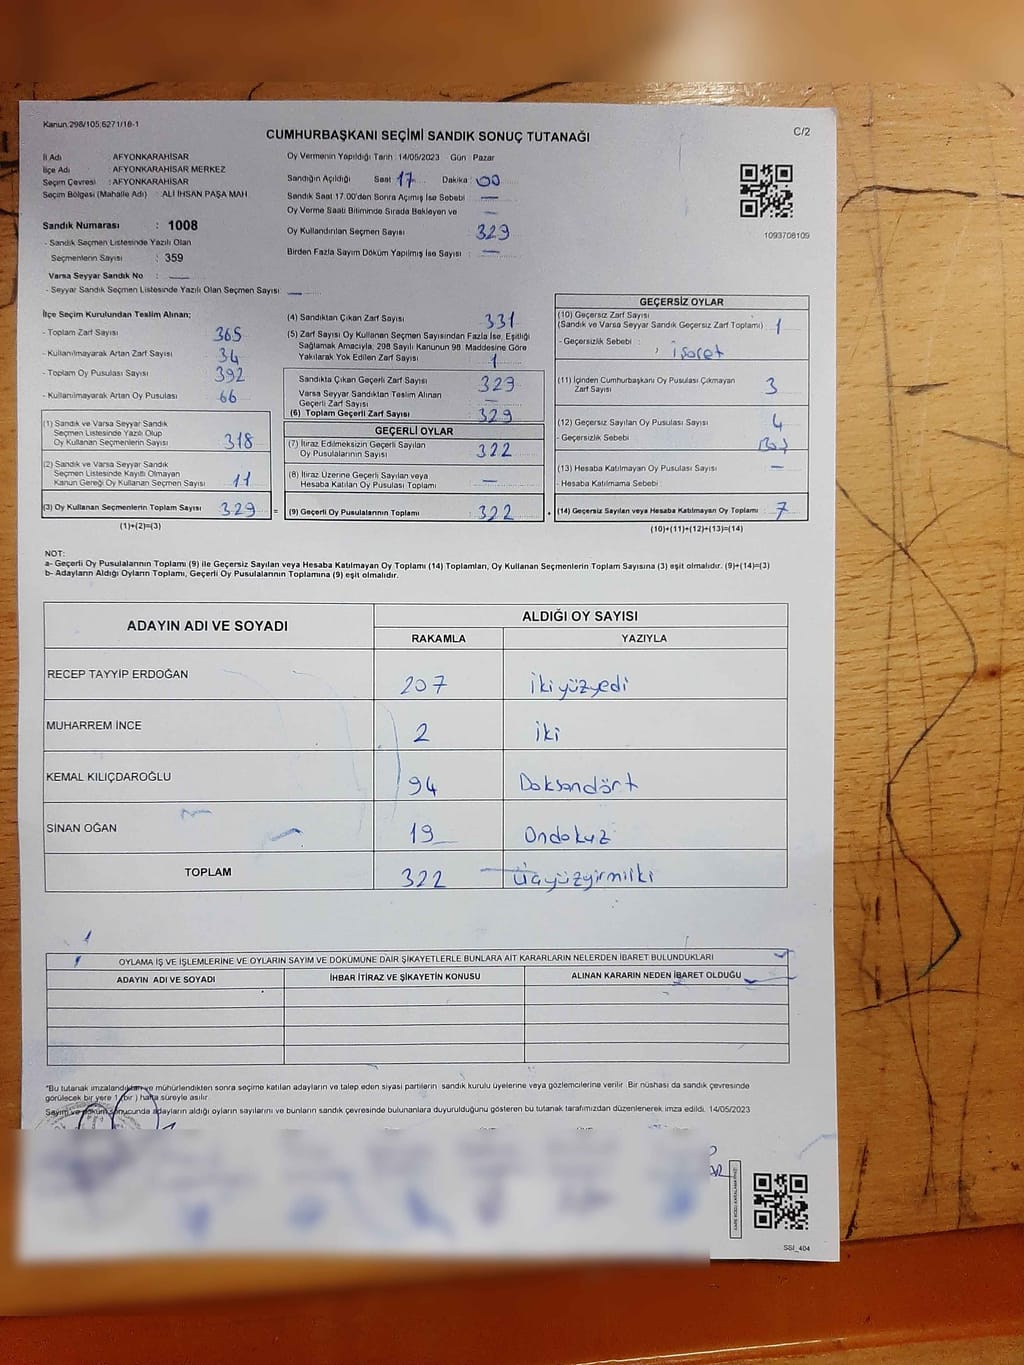 Kanun:298/105,6271/18-1
CUMHURBAŞKANI SEÇİMİ SANDIK SONUÇ TUTANAĞI
C/2
İl Adı : AFYONKARAHİSAR
İlçe Adı : AFYONKARAHİSAR MERKEZ
Seçim Çevresi : AFYONKARAHİSAR
Seçim Bölgesi (Mahalle Adı) : ALİ İHSAN PAŞA MAH.
Sandık Numarası : 1008
- Sandık Seçmen Listesinde Yazılı Olan
Seçmenlerin Sayısı : 359
Varsa Seyyar Sandık No : —
- Seyyar Sandık Seçmen Listesinde Yazılı Olan Seçmen Sayısı : —
Oy Vermenin Yapıldığı Tarih : 14/05/2023 Gün : Pazar
Sandığın Açıldığı Saat : 17 Dakika : 00
Sandık Saat 17.00'den Sonra Açımış İse Sebebi : —
Oy Verme Saati Bitiminde Sırada Bekleyen ve : —
Oy Kullandırılan Seçmen Sayısı : 329
Birden Fazla Sayım Döküm Yapılmış İse Sayısı : —
1093708109
İlçe Seçim Kurulundan Teslim Alınan;
- Toplam Zarf Sayısı : 365
- Kullanılmayarak Artan Zarf Sayısı : 34
- Toplam Oy Pusulası Sayısı : 392
- Kullanılmayarak Artan Oy Pusulası : 66
(1) Sandık ve Varsa Seyyar Sandık
Seçmen Listesinde Yazılı Olup
Oy Kullanan Seçmenlerin Sayısı : 318
(2) Sandık ve Varsa Seyyar Sandık
Seçmen Listesinde Kayıtlı Olmayan
Kanun Gereği Oy Kullanan Seçmen Sayısı : 11
(3) Oy Kullanan Seçmenlerin Toplam Sayısı : 329 =
(1)+(2)=(3)
(4) Sandıktan Çıkan Zarf Sayısı : 331
(5) Zarf Sayısı Oy Kullanan Seçmen Sayısından Fazla İse, Eşitliği
Sağlamak Amacıyla, 298 Sayılı Kanunun 98. Maddesine Göre
Yakılarak Yok Edilen Zarf Sayısı : 1
Sandıkta Çıkan Geçerli Zarf Sayısı : 329
Varsa Seyyar Sandıktan Teslim Alınan
Geçerli Zarf Sayısı : —
(6) Toplam Geçerli Zarf Sayısı : 329
GEÇERLİ OYLAR
(7) İtiraz Edilmeksizin Geçerli Sayılan
Oy Pusulalarının Sayısı : 322
(8) İtiraz Üzerine Geçerli Sayılan veya
Hesaba Katılan Oy Pusulası Toplamı : —
(9) Geçerli Oy Pusulalarının Toplamı : 322 +
GEÇERSİZ OYLAR
(10) Geçersiz Zarf Sayısı
(Sandık ve Varsa Seyyar Sandık Geçersiz Zarf Toplamı) : 1
- Geçersizlik Sebebi :
işaret
(11) İçinden Cumhurbaşkanı Oy Pusulası Çıkmayan
Zarf Sayısı : 3
(12) Geçersiz Sayılan Oy Pusulası Sayısı : 4
- Geçersizlik Sebebi : Boş
(13) Hesaba Katılmayan Oy Pusulası Sayısı : —
- Hesaba Katılmama Sebebi :
(14) Geçersiz Sayılan veya Hesaba Katılmayan Oy Toplamı : 7
(10)+(11)+(12)+(13)=(14)
NOT:
a- Geçerli Oy Pusulalarının Toplamı (9) ile Geçersiz Sayılan veya Hesaba Katılmayan Oy Toplamı (14) Toplamları, Oy Kullanan Seçmenlerin Toplam Sayısına (3) eşit olmalıdır. (9)+(14)=(3)
b- Adayların Aldığı Oyların Toplamı, Geçerli Oy Pusulalarının Toplamına (9) eşit olmalıdır.
ADAYIN ADI VE SOYADI
ALDIĞI OY SAYISI
RAKAMLA YAZIYLA
RECEP TAYYİP ERDOĞAN 207 ikiyüzyedi
MUHARREM İNCE 2 iki
KEMAL KILIÇDAROĞLU 94 Doksandört
SİNAN OĞAN 19 Ondokuz
TOPLAM 322 Üçyüzyirmiiki
OYLAMA İŞ VE İŞLEMLERİNE VE OYLARIN SAYIM VE DÖKÜMÜNE DAİR ŞİKAYETLERLE BUNLARA AİT KARARLARIN NELERDEN İBARET BULUNDUKLARI
ADAYIN ADI VE SOYADI İHBAR İTİRAZ VE ŞİKAYETİN KONUSU ALINAN KARARIN NEDEN İBARET OLDUĞU
*Bu tutanak imzalandıktan ve mühürlendikten sonra seçime katılan adayların ve talep eden siyasi partilerin sandık kurulu üyelerine veya gözlemcilerine verilir. Bir nüshası da sandık çevresinde
görülecek bir yere 1 (bir) hafta süreyle asılır.
Sayım ve döküm sonucunda adayların aldığı oyların sayılarını ve bunların sandık çevresinde bulunanlara duyurulduğunu gösteren bu tutanak tarafımızdan düzenlenerek imza edildi. 14/05/2023
SSI_404